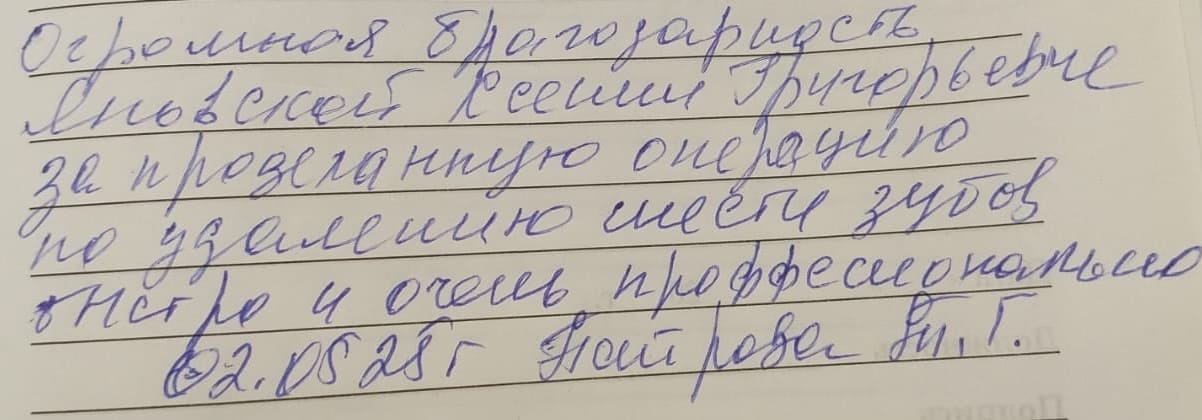 Огромная благодарность
Яновской Ксении Григорьевне
за проделанную операцию
по удалению шести зубов
быстро и очень проффесионально
02.05 25г